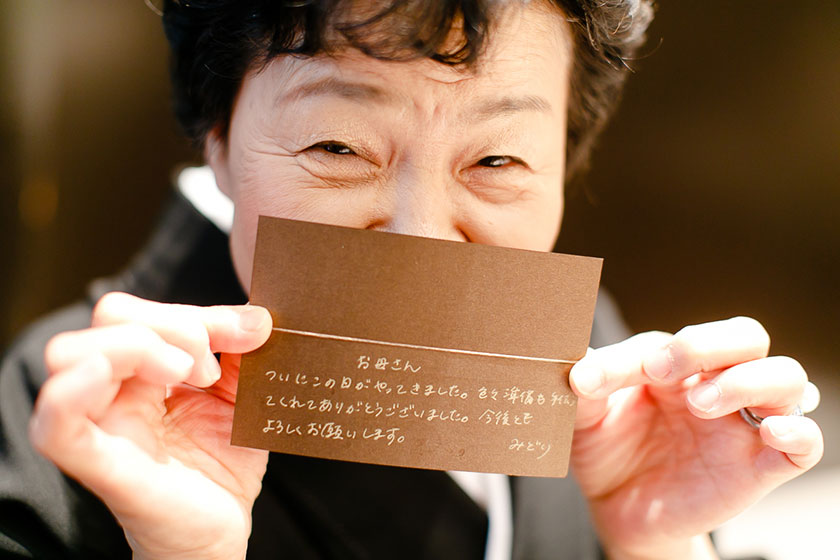 お母さん
ついにこの日がやってきました。色々準備も
てくれてありがとうございました。今後とも
よろしくお願いします。
みどり